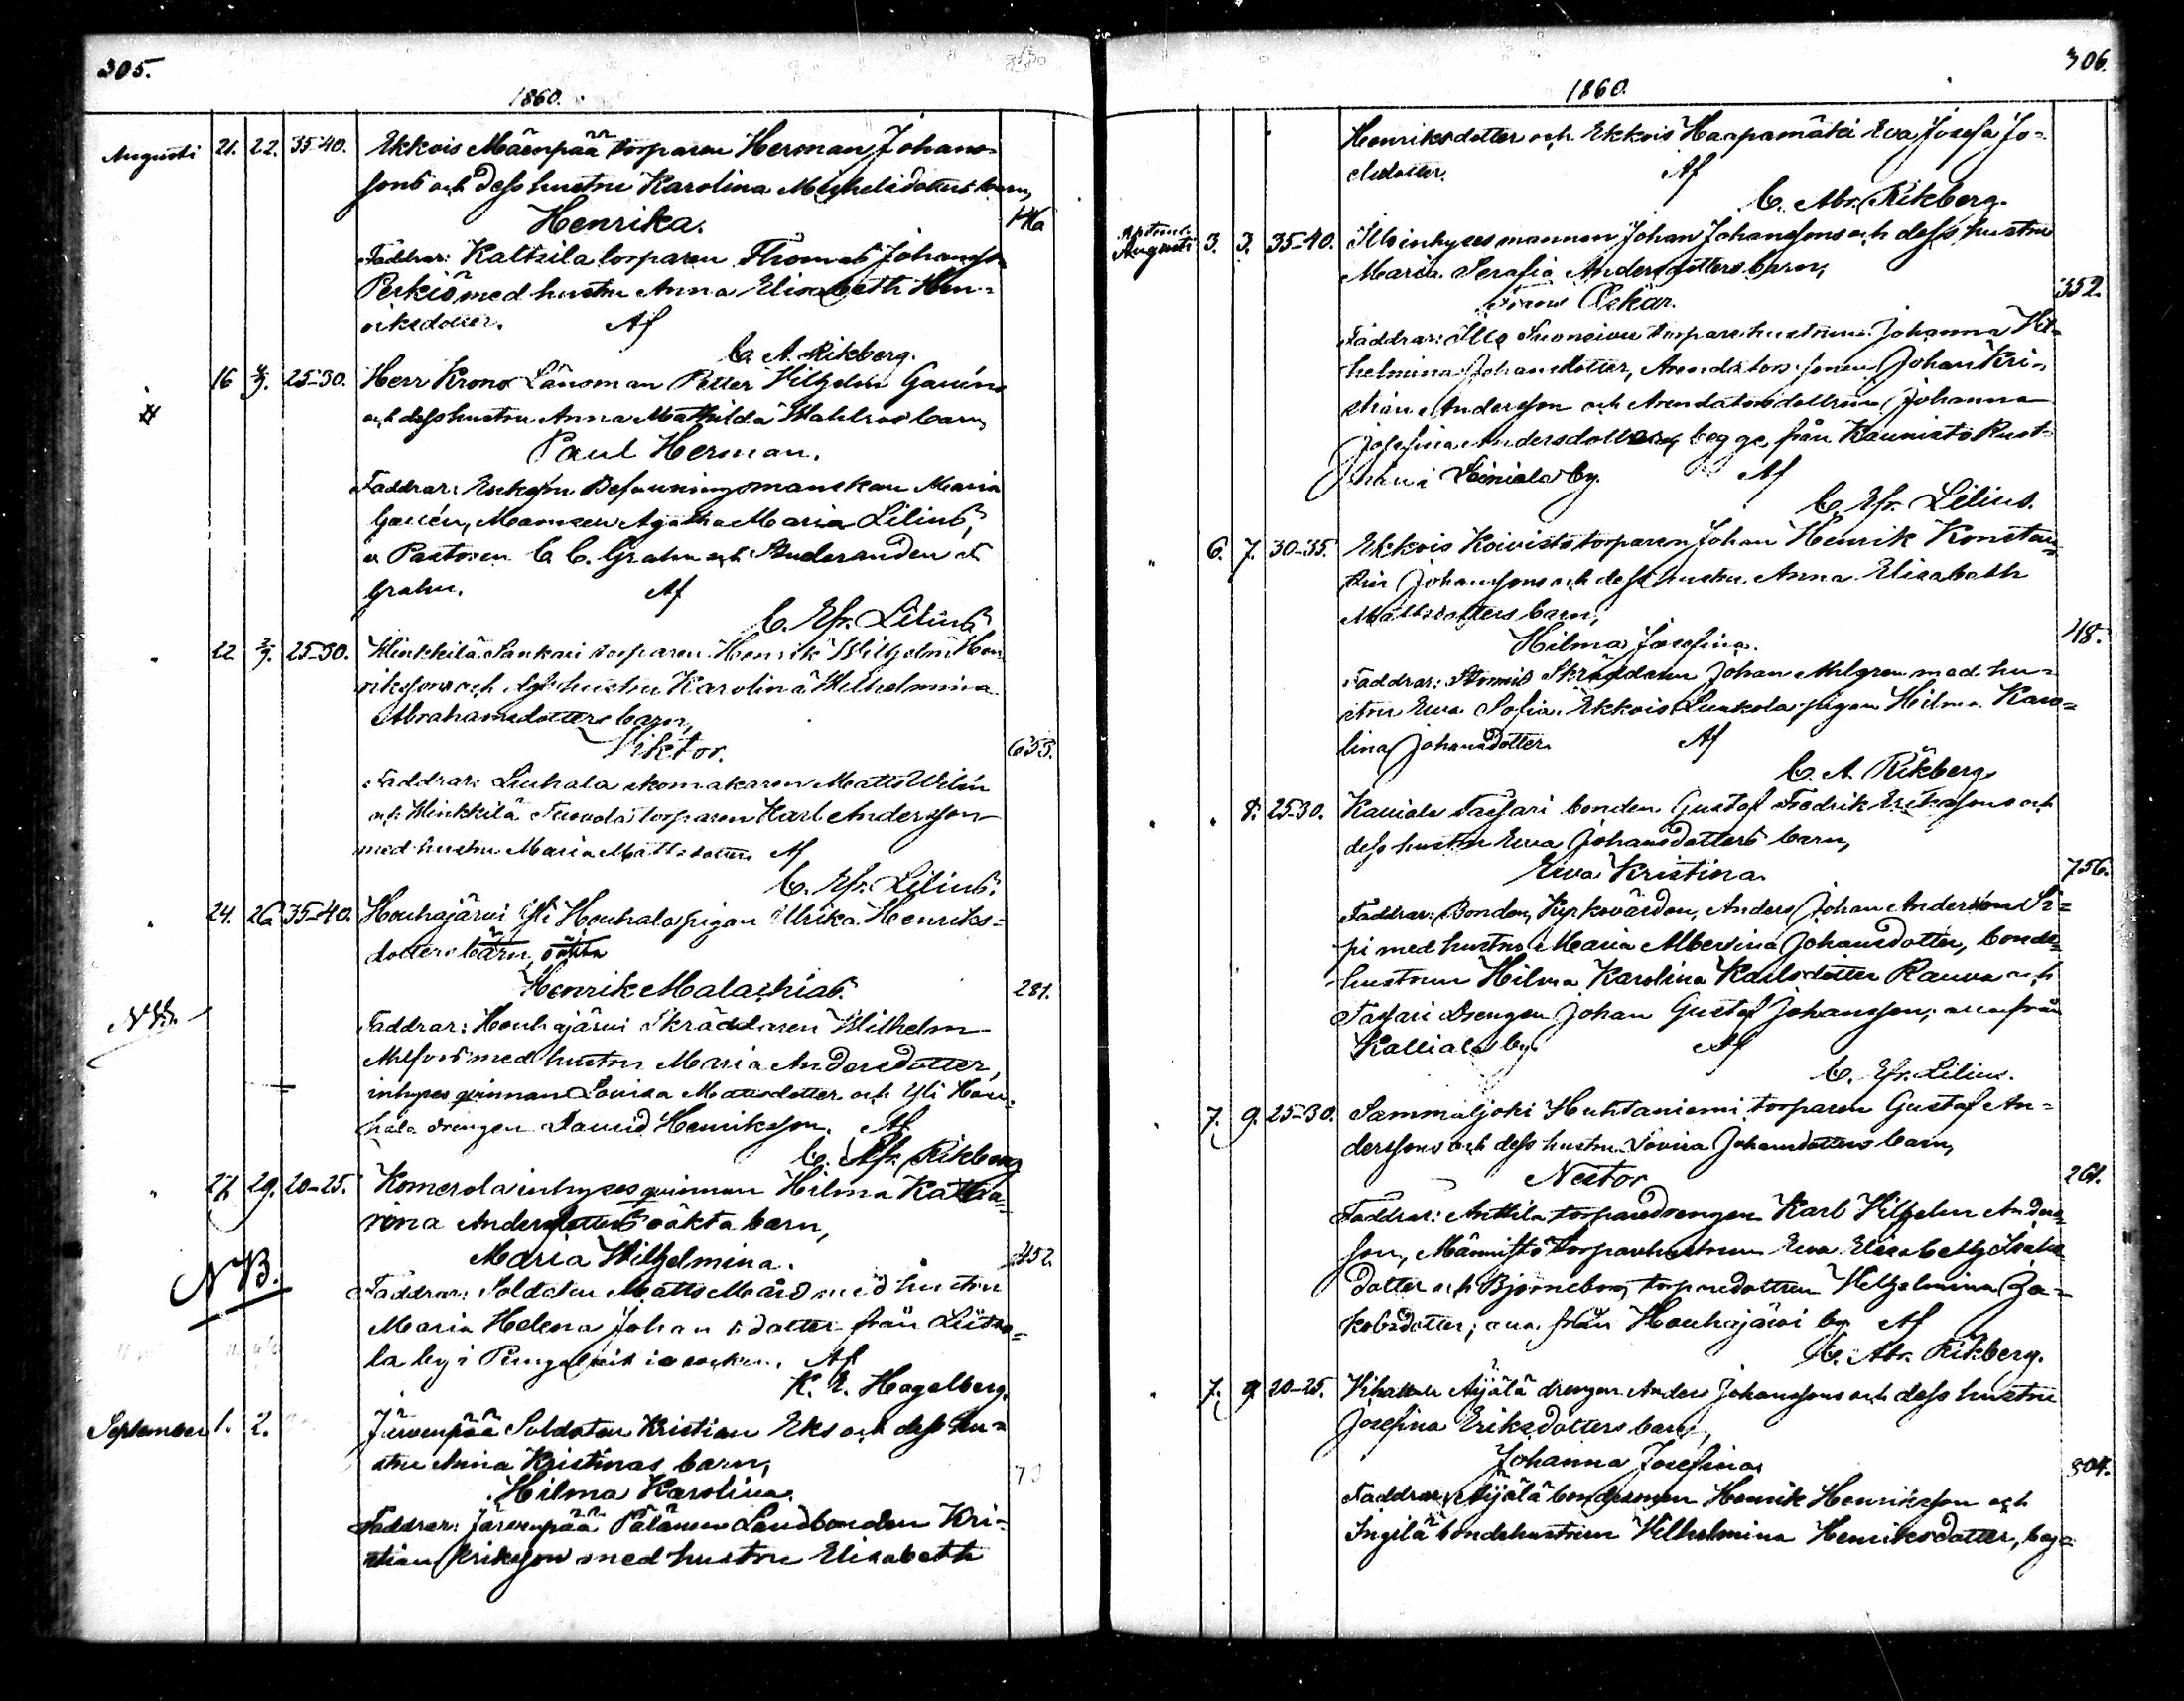 305.
1860.
Augusti 21. 22. 35-40. Ekkois Mäenpää torparen Herman Johans-
sons och dess hustru Karolina Michelsdotters barn,
Henrika. 146
Faddrar: Kaltsila torparen Thomas Johansson
Perkiö med hustru Anna Elisabeth Hen-
riksdotter. Af
C. A. Rikberg.
" 16 4/9. 25-30. Herr Krono Länsman Petter Vilhelm Gauéns
och dess hustru Anna Mathilda Wahlroos barn,
Paul Herman.
Faddrar: Enkefru Befallningsmanskan Maria
Gauén, Mamsell Agatha Maria Lilius,
v. Pastoren C. C. Grahn och Studeranden
Grahn. Af
C. Efr. Lilius.
" 22 2/9. 25-30. Kinkkilä Sankari torparen Henrik Wilhelm Hen-
rikssons och dess hustru Karolina Wilhelmina
Abrahamsdotters barn,
Viktor. 653.
Faddrar: Liuhala skomakaren Matts Wilén
och Kinkkilä Tuovola torparen Karl Andersson
med hustru Maria Mattsdotter. Af
C. Efr. Lilius.
" 24. 26 35-40. Houhajärvi Yli Houhala pigan Ulrika Henriks-
dotters barn, oäkta
Henrik Malachias. 281.
NB.
Faddrar: Houhajärvi Skräddaren Wilhelm
Ahlfors med hustru Maria Andersdotter,
inhyses qvinnan Lovisa Mattsdotter och Yli Hou-
hala drengen David Henriksson. Af
C. Abr. Rikberg
" 27. 29. 20-25. Komerola inhyses qvinnan Hilma Katha-
rina Andersdotters oäkta barn,
Maria Wilhelmina. 452.
NB.
Faddrar: Soldaten Matts Mård med hustru
Maria Helena Johansdotter från Liitso-
la by i Pungalaitio socken. Af
K. E. Hagelberg.
September 1. 2. Järvenpää Soldaten Kristian Eks och dess hu-
stru Anna Kristinas barn,
Hilma Karolina.
Faddrar: Järvenpää Pälänen Landbonden Kri-
stian Eriksson med hustru Elisabeth
306.
1860.
Henriksdotter och Ekkois Haapamäki Eva Josefa Jo-
elsdotter. Af
C. Abr. Rikberg.
Septemb.
Augusti 3. 3. 35-40. Illo inhyses mannen Johan Johanssons och dess hustru
Maria Serafia Andersdotters barn,
Frans Oskar. 352.
Faddrar: Illo Suonsivu torpare hustrun Johanna Vil-
helmina Johansdotter, Arendators sonen Johan Kri-
stian Andersson och Arendators dottren Johanna
Josefina Andersdotter, begge från Kaunisto Rust-
håll i Soinila by. Af
C. Efr. Lilius.
" 6. 7. 30-35. Ekkois Koivisto torparen Johan Henrik Konstan-
tin Johanssons och dess hustru Anna Elisabeth
Mattsdotters barn,
Hilma Josefina. 48.
Faddrar: Stormis Skräddaren Johan Ahlgren med hu-
stru Eva Sofia. Ekkois Luukola pigan Hilma Karo-
lina Johansdotter. Af
C. A. Rikberg
" " 8. 25-30. Kauiala Tassari bonden Gustaf Fredrik Erikssons och
dess hustru Eva Johansdotters barn,
Eva Kristina. 756.
Faddrar: Bonden, Kyrkovärden, Anders Johan Andersson Si-
pi med hustru Maria Albertina Johansdotter, bonde-
hustrun Hilma Karolina Karlsdotter Rauva och
Tassari drengen Johan Gustaf Johansson, alla från
Kalliala by. Af
C. Efr. Lilius.
" 7. 9. 25-30. Sammaljoki Huhtaniemi torparen Gustaf An-
derssons och dess hustru Lovisa Johansdotters barn,
Nestor 261.
Faddrar: Anttila torparedrengen Karl Vilhelm Anders-
son, Männistö torparhustrun Eva Elisabeth Isaks-
dotter och Björneborg torparedottren Vilhelmina Ja-
kobsdotter; alla från Houhajärvi by. Af
C. Abr. Rikberg.
" 7. 9. 20-25. Vihattula Äijälä drengen Anders Johanssons och dess hustru
Josefina Eriksdotters barn,
Johanna Josefina 804.
Faddrar: Äijälä bondesonen Henrik Henriksson och
Ingilä bondehustrun Vilhelmina Henriksdotter, beg-